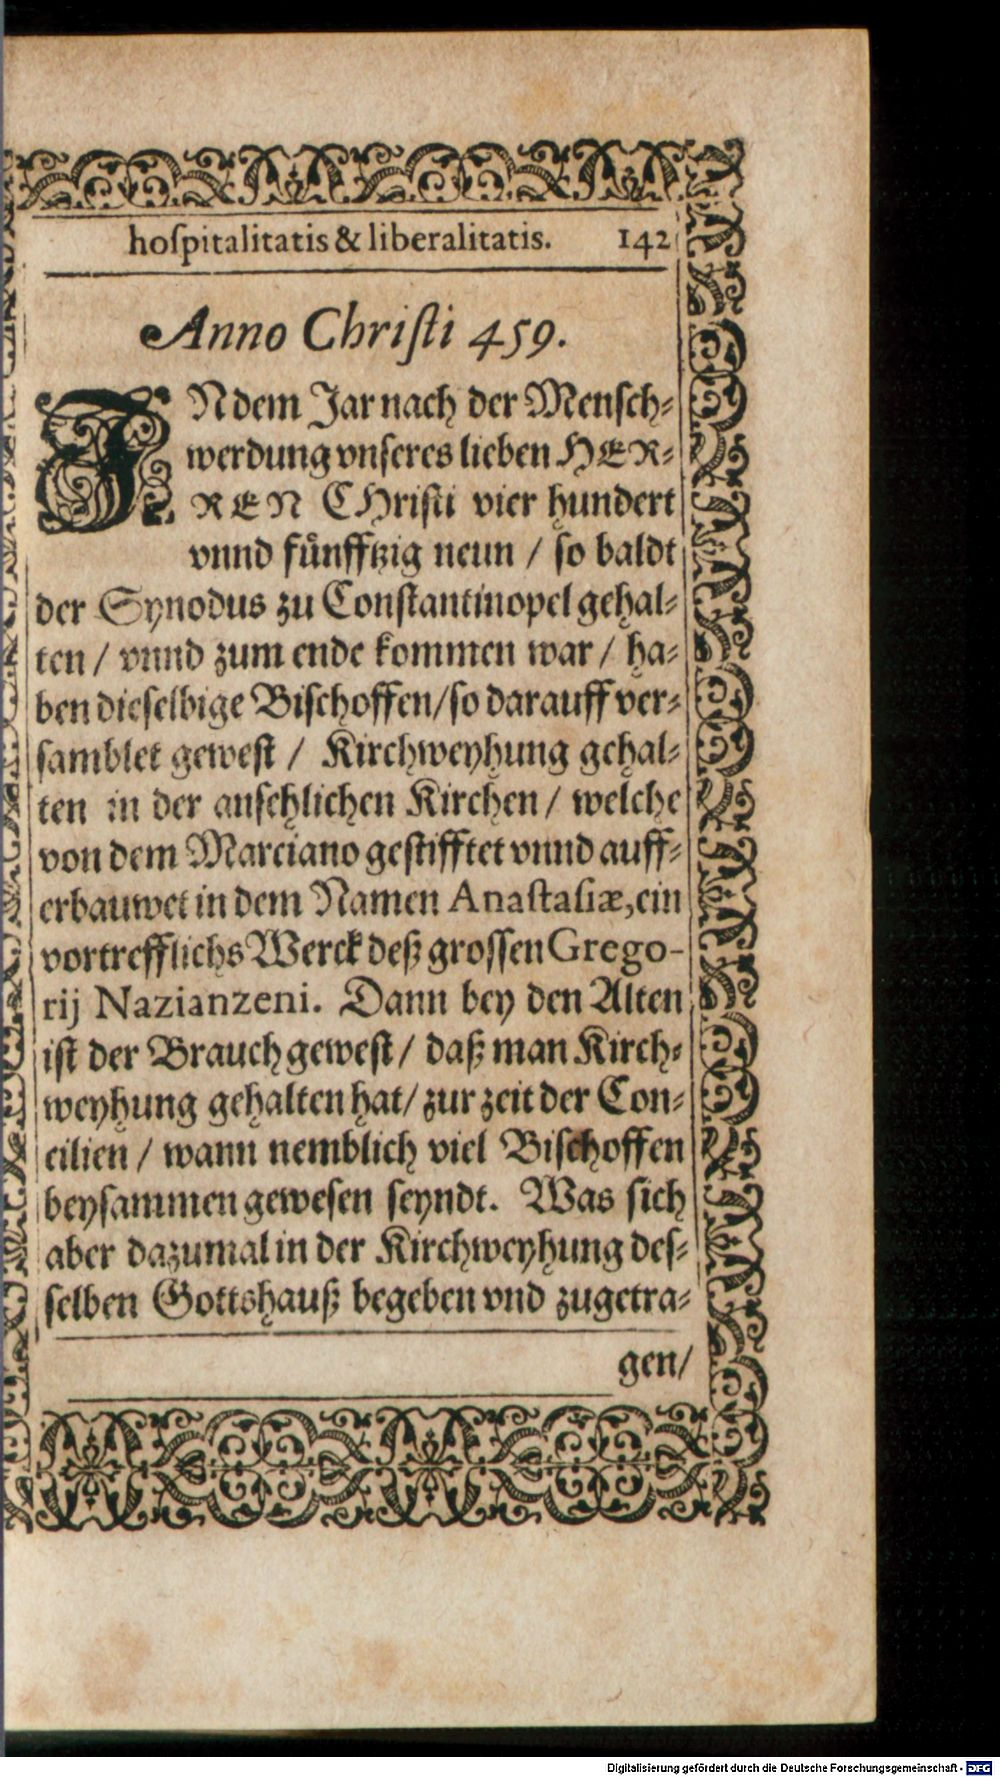 hoſpitalitatis & liberalitatis. 142
Anno Chriſti 459.
JNdem Jar nach der Menſch⸗
werdung vnſeres lieben HER⸗
REN CHriſti vier hundert
vnnd fuͤnfftzig neun / ſo baldt
der Synodus zu Conſtantinopel gehal⸗
ten / vnnd zum ende kommen war / ha⸗
ben dieſelbige Biſchoffen/ſo darauff ver⸗
ſamblet geweſt / Kirchweyhung gehal⸗
ten in der anſehlichen Kirchen / welche
von dem Marciano geſtifftet vnnd auff⸗
erbauwet in dem Namen Anaſtaſiæ, ein
vortrefflichs Werck deß groſſen Grego-
rij Nazianzeni. Dann bey den Alten
iſt der Brauch geweſt / daß man Kirch⸗
weyhung gehalten hat/ zur zeit der Con⸗
cilien / wann nemblich viel Biſchoffen
beyſammen geweſen ſeyndt. Was ſich
aber dazumal in der Kirchweyhung deſ⸗
ſelben Gottshauß begeben vnd zugetra⸗
gen/
Digitalisierung gefördert durch die Deutsche Forschungsgemeinschaft - DFG